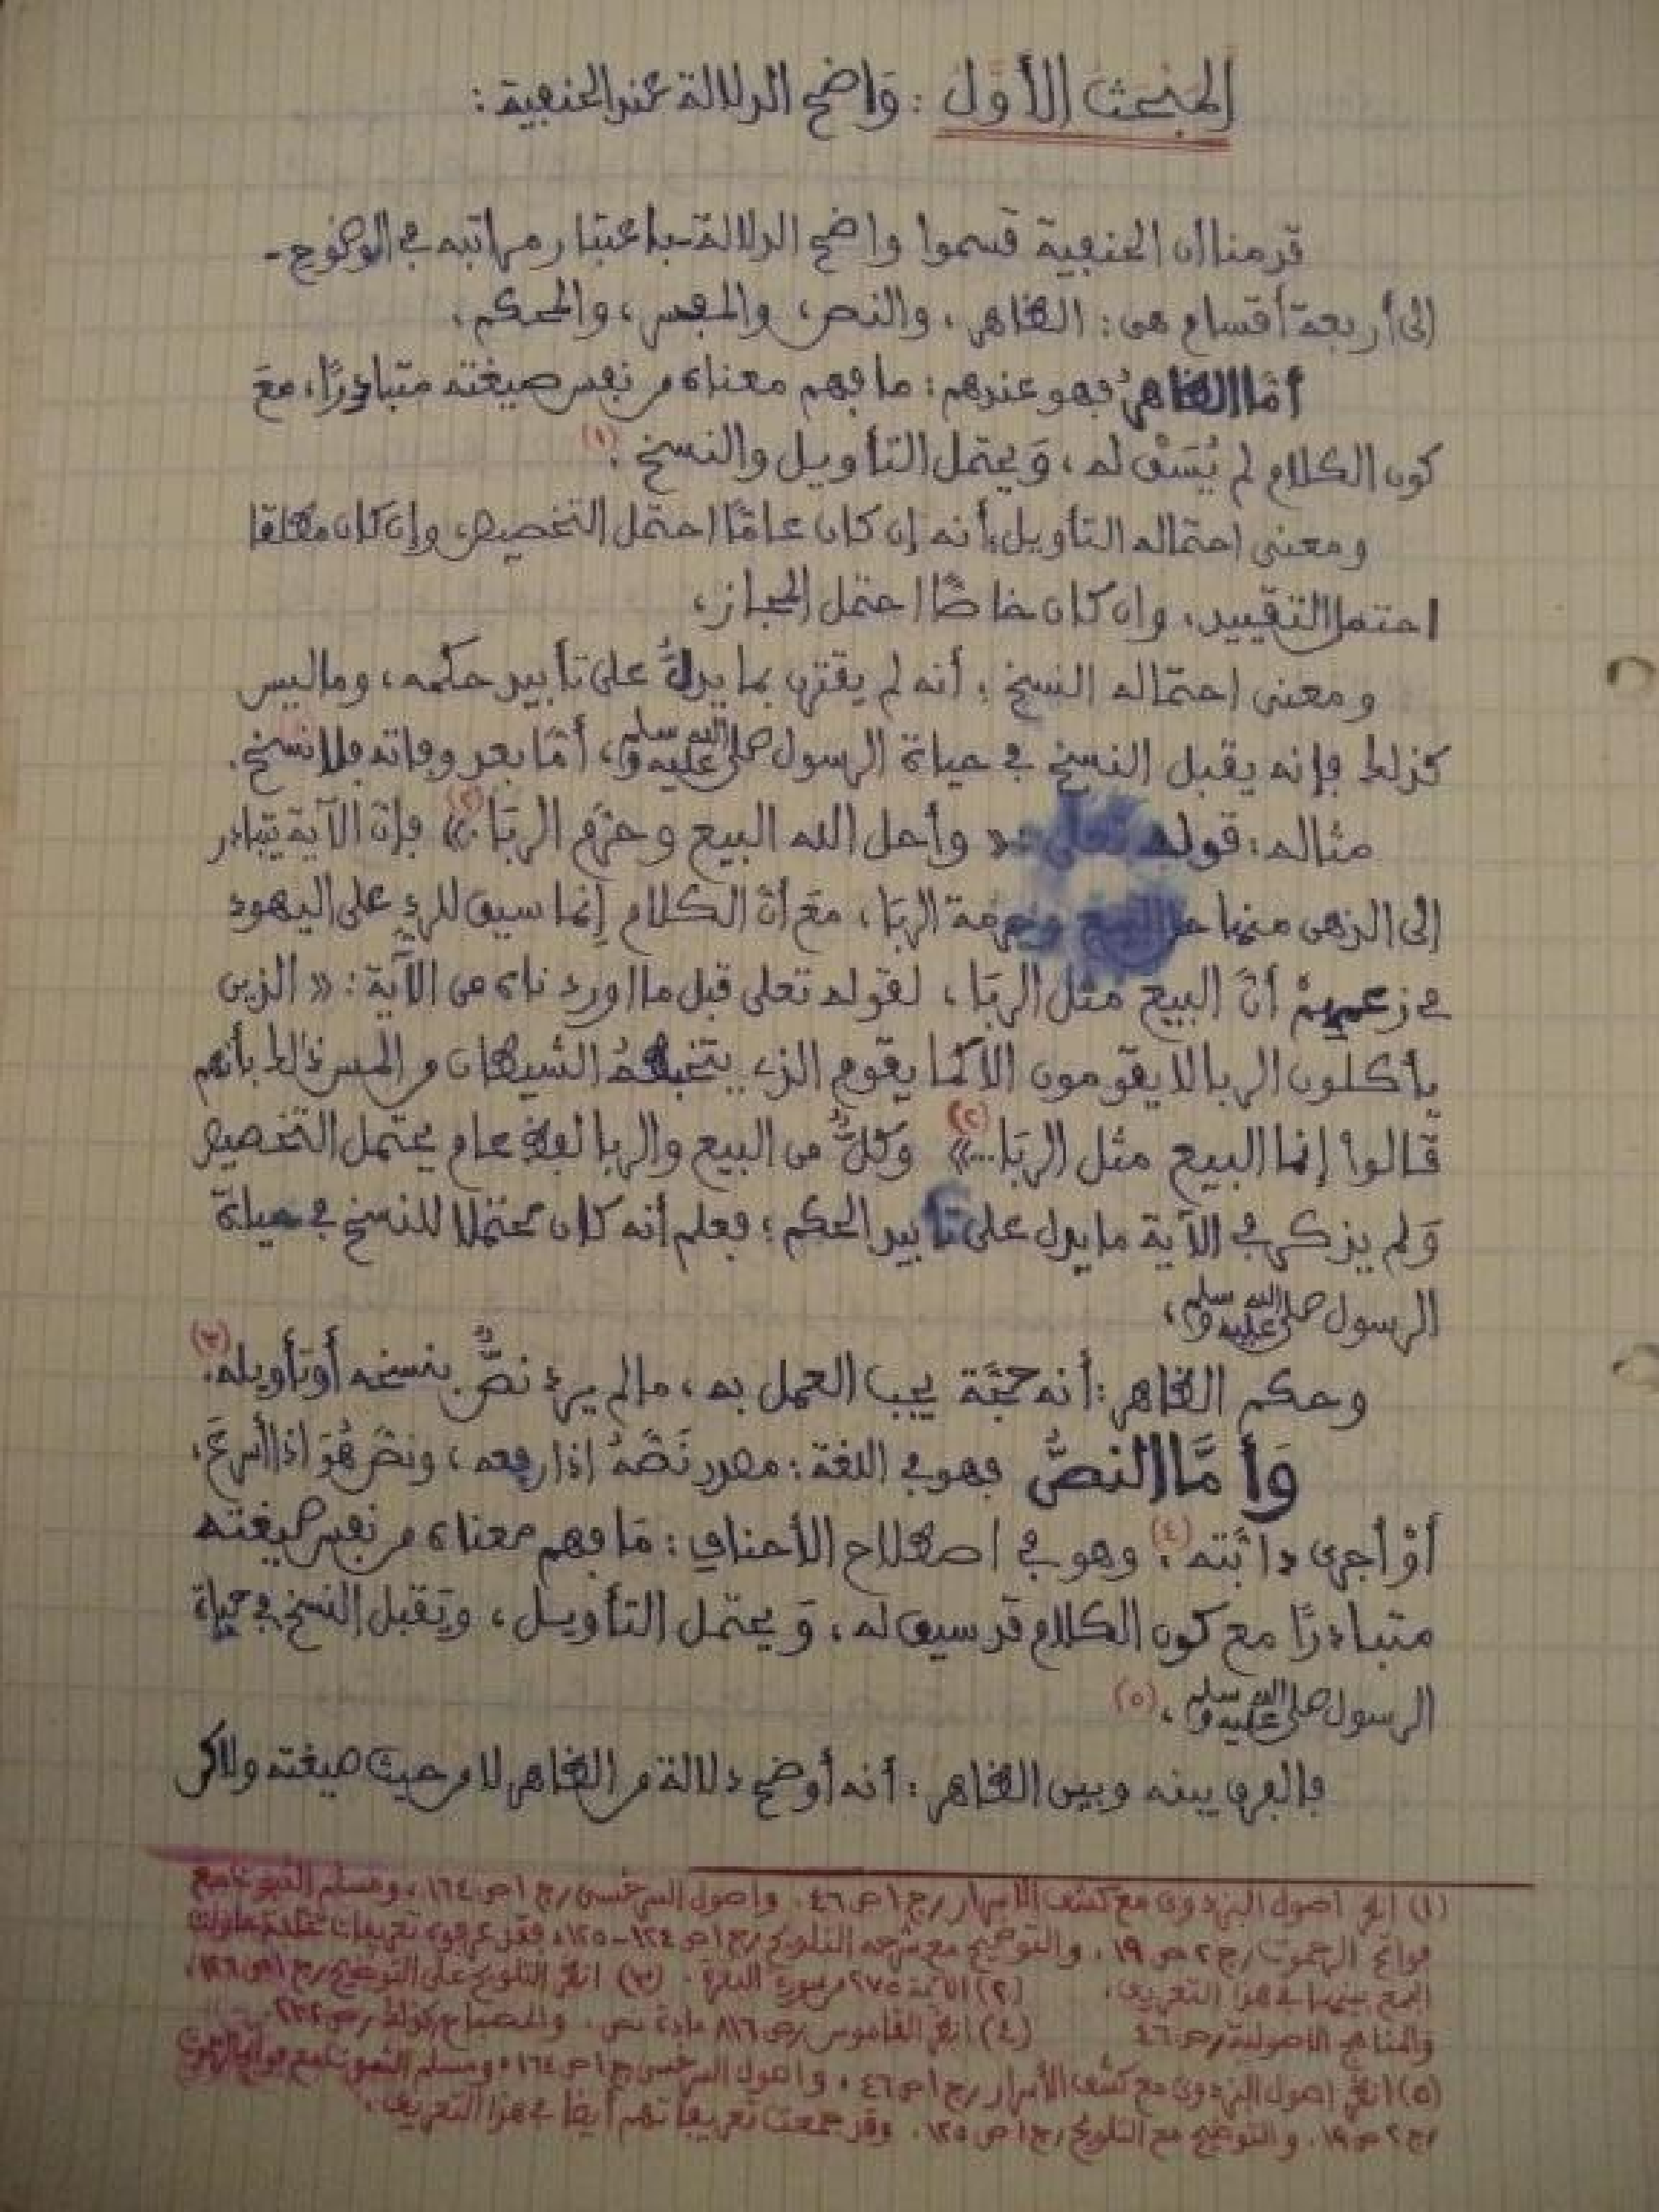 المبحث الأول : وَاضح الدلالة عند الحنفية :
قدمنا ان الحنفية قسموا واضح الدلالة - باعتبار مراتبه في الوضوح -
إلى أربعة أقسام هى : الظاهر ، والنص ، والمفسر ، والمحكم .
أمَّا الظاهرُ فهو عندهم : ما فهم معناه من نفس صيغته متبادرًا ، معَ
كون الكلام لم يُسَقْ له ، وَيحتمل التأويل والنسخ . (١)
ومعنى احتماله التأويل : أنه إن كان عامًّا احتمل التخصيص ، وإن كان مطلقا
احتمل التقييد ، وان كان خاصًّا احتمل المجاز ،
ومعنى احتماله النسخ : أنه لم يقترن بما يدلُّ على تأبيد حكمه ، وما ليس
كذلك فإنه يقبل النسخ في حياة الرسول صلى الله عليه وسلم ، أمَّا بعد وفاته فلا نسخ .
مثاله : قوله تعلى : « وأحل الله البيع وحرَّم الربَا . » (٢) فإنَّ الآية يتبادر
إلى الذهن منها حل البيع وحرمة الربَا ، معَ أنَّ الكلام إنما سيق للردِّ على اليهود
في زعمهمْ أنَّ البيع مثل الربَا ، لقوله تعلى قبل ما اوردناه من الآية : « الذين
يأكلون الربا لا يقومون الا كما يقوم الذى يتخبطهُ الشيطان من المس ذالك بأنهم
قالوا إنما البيع مثل الربَا ... » (٢) وَكلٌّ من البيع والربا لفظ عام يحتمل التخصيص
وَلم يذكر في الآية ما يدل على تأبيد الحكم ؛ فعلم أنه كان محتملا للنسخ في حياة
الرسول صلى الله عليه وسلم ،
وحكم الظاهر : أنه حجَّة يجب العمل به ، ما لم يرد نصٌّ بنسخه أو تأويله . (٣)
وَأمَّا النصُّ فهو في اللغة : مصدر نَصَّهُ اذا رفعه ، ونصَّ هُوَ اذا أسرعَ ،
أوْ أجرى دابَّته . (٤) وهو في اصطلاح الأحناف : مَا فهم معناه من نفس صيغته
متبادرًا مع كون الكلام قد سيق له ، وَيحتمل التأويل ، ويقبل النسخ في حياة
الرسول صلى الله عليه وسلم . (٥)
فالفرق بينه وبين الظاهر : أنه أوضح دلالة من الظاهر لا من حيث صيغته ولاكن
(١) انظر اصول البزدوى مع كشف الأسرار / ج ١ ص ٤٦ . واصول السرخسى / ج ١ ص ١٦٤ ، ومسلم الثبوت مع
فواتح الرحموت / ج ٢ ص ١٩ . والتوضيح مع شرحه التلويح / ج ١ ص ١٢٤ - ١٢٥ ، فقد عرفوه تعريفات مختلفة حاولت
الجمع بينها في هذا التعريف . (٢) الآية ٢٧٥ من سورة البقرة . (٣) انظر التلويح على التوضيح / ج ١ ص ١٢٦ ،
والمناهج الاصولية / ص ٤٦ (٤) انظر القاموس / ص ٨١٦ مادة نص . والمصباح كذلك / ص ٢٣٢ .
(٥) انظر اصول البزدوى مع كشف الأسرار / ج ١ ص ٤٦ . واصول السرخسى ج ١ ص ١٦٤ ، ومسلم الثبوت مع فواتح الرحموت
/ ج ٢ ص ١٩ . والتوضيح مع التلويح / ج ١ ص ١٢٥ . وقد جمعت تعريفاتهم أيضًا في هذا التعريف .